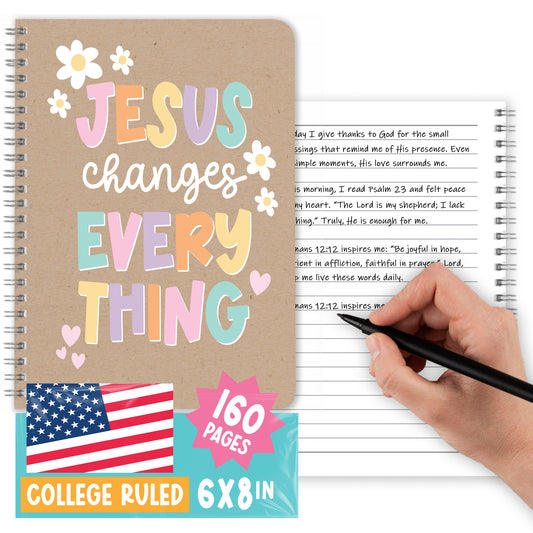 JESUS
changes
EVERY
THING
160
PAGES
COLLEGE RULED 6X8 IN
day I give thanks to God for the small
ssings that remind me of His presence. Even
simple moments, His love surrounds me.
is morning, I read Psalm 23 and felt peace
my heart. "The Lord is my shepherd; I lack
hing." Truly, He is enough for me.
mans 12:12 inspires me: "Be joyful in hope,
tient in affliction, faithful in prayer." Lord,
p me live these words daily.
mans 12:12 inspires me